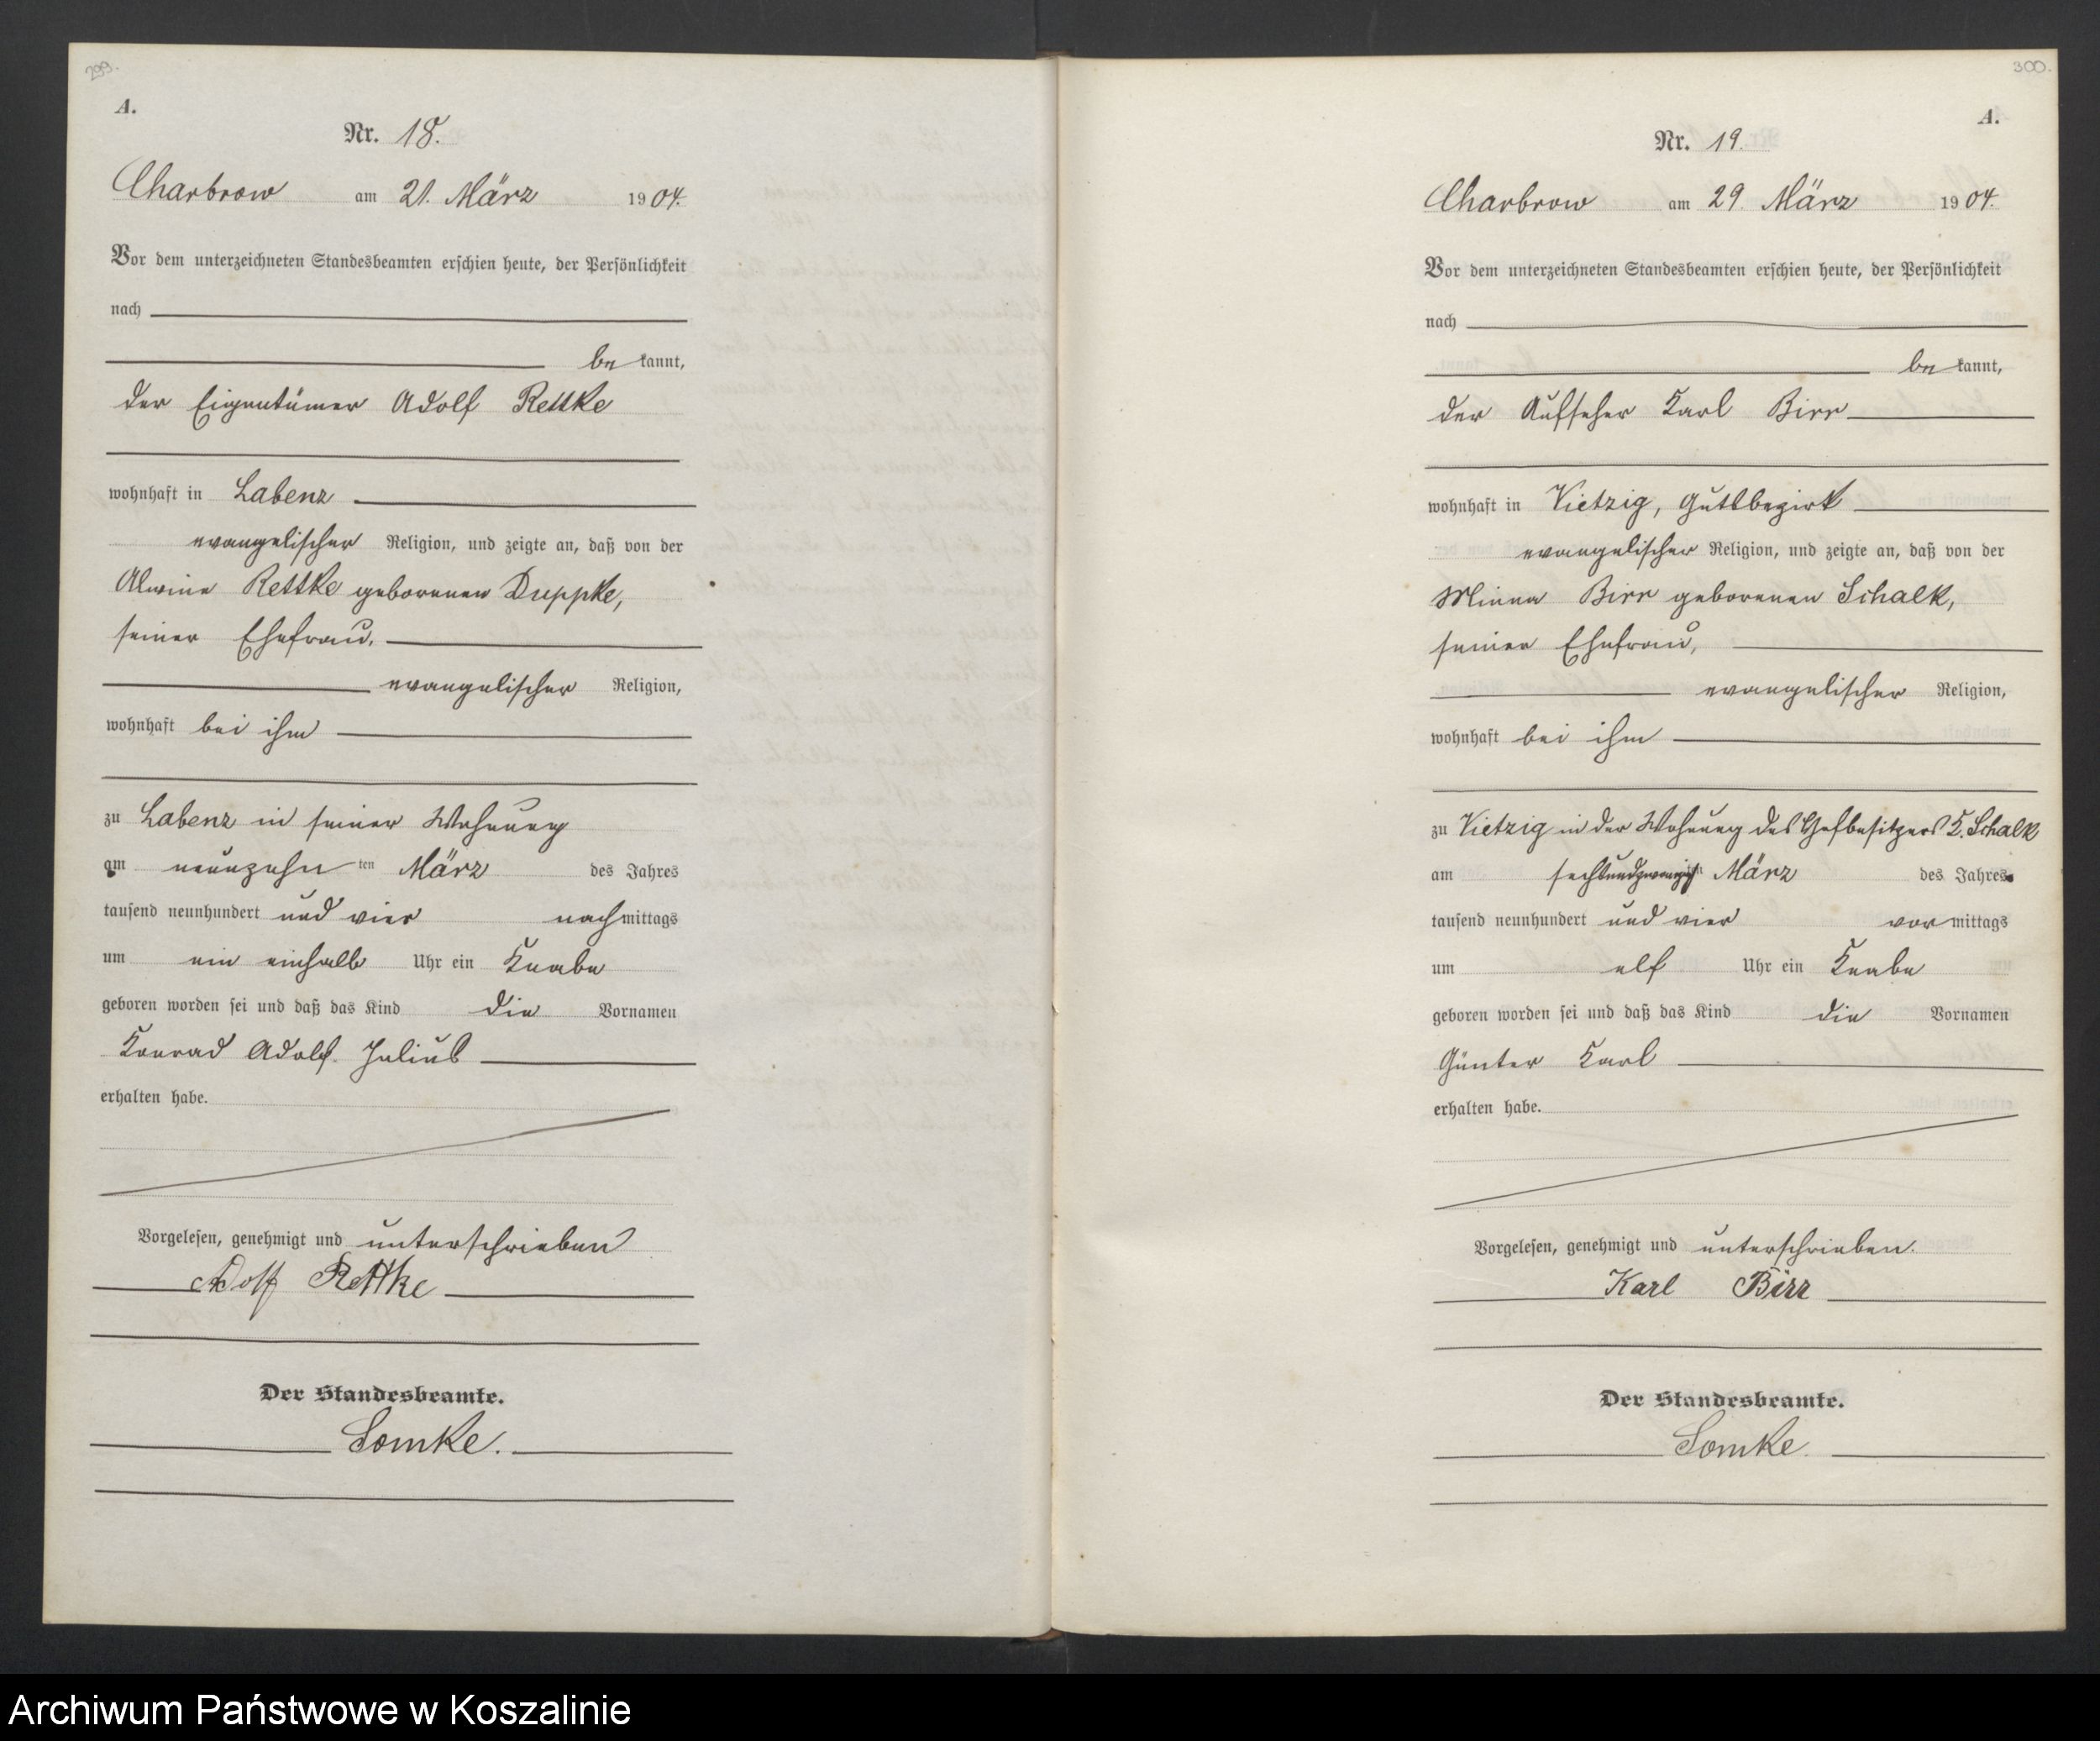 299.
A.
Nr. 18.
Charbrow am 21. März 1904.
Vor dem unterzeichneten Standesbeamten erschien heute, der Persönlichkeit
nach
be kannt,
der Eigentümer Adolf Rettke
wohnhaft in Labenz
evangelischer Religion, und zeigte an, daß von der
Alwine Rettke geborenen Duppke,
seiner Ehefrau,
evangelischer Religion,
wohnhaft bei ihm
zu Labenz in seiner Wohnung
am neunzehn ten März des Jahres
tausend neunhundert und vier nachmittags
um ein einhalb Uhr ein Knabe
geboren worden sei und daß das Kind die Vornamen
Konrad Adolf Julius
erhalten habe.
Vorgelesen, genehmigt und unterschrieben
Adolf Rettke
Der Standesbeamte.
Lomke.
300.
A.
Nr. 19.
Charbrow am 29. März 1904.
Vor dem unterzeichneten Standesbeamten erschien heute, der Persönlichkeit
nach
be kannt,
der Aufseher Karl Birr
wohnhaft in Vietzig, Gutsbezirk
evangelischer Religion, und zeigte an, daß von der
Minna Birr geborenen Schalk,
seiner Ehefrau,
evangelischer Religion,
wohnhaft bei ihm
zu Vietzig in der Wohnung des Hofbesitzers K. Schalk
am sechsundzwanzigsten März des Jahres
tausend neunhundert und vier vormittags
um elf Uhr ein Knabe
geboren worden sei und daß das Kind die Vornamen
Günter Karl
erhalten habe.
Vorgelesen, genehmigt und unterschrieben.
Karl Birr
Der Standesbeamte.
Lomke.
Archiwum Państwowe w Koszalinie